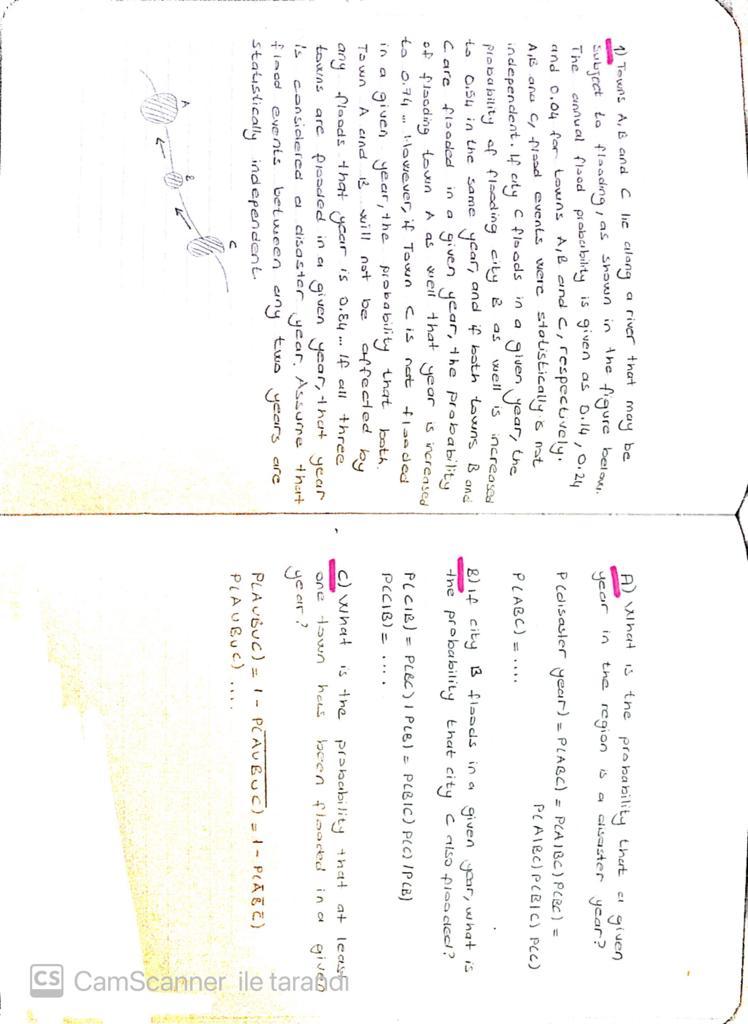 1) Towns A,B and C lie along a river that may be
subject to flooding, as shown in the figure below.
The annual flood probability is given as 0.14, 0.24
and 0.04 for towns A,B and C, respectively.
A,B and C, flood events were statistically is not
independent. If city C floods in a given year, the
probability of flooding city B as well is increased
to 0.54 in the same year, and if both towns B and
C are flooded in a given year, the probability
of flooding town A as well that year is increased
to 0.74... However, if Town C is not flooded
in a given year, the probability that both
Town A and B will not be affected by
any floods that year is 0.84... If all three
towns are flooded in a given year, that year
is considered a disaster year. Assume that
flood events between any two years are
statistically independent.
A
B
C
A) What is the probability that a given
year in the region is a disaster year?
P(disaster year) = P(ABC) = P(A|BC) P(BC) =
P(A|BC) P(B|C) P(C)
P(ABC) = ....
B) If city B floods in a given year, what is
the probability that city C also flooded?
P(C|B) = P(BC) / P(B) = P(B|C) P(C) / P(B)
P(C|B) = ....
C) What is the probability that at least
one town has been flooded in a given
year?
P(A∪B∪C) = 1 - P(A̅∪̅B̅∪̅C̅) = 1 - P(A̅B̅C̅)
P(A∪B∪C) ....
CS CamScanner ile tarandı